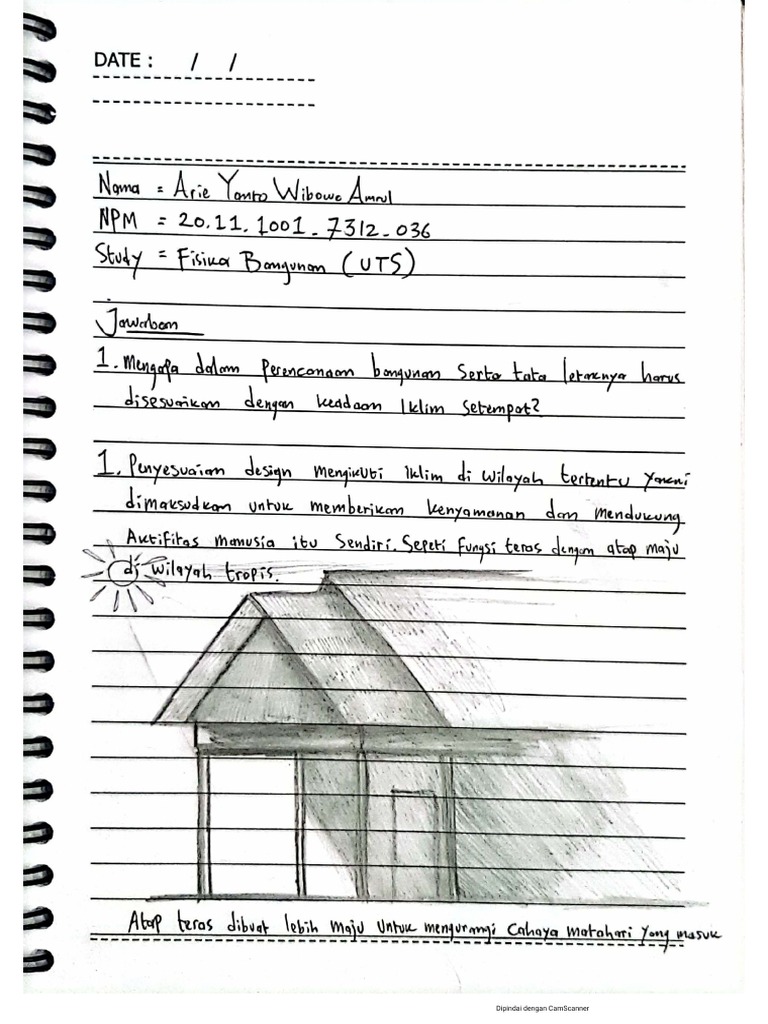 DATE : / /
Nama = Arie Yanto Wibowo Amrul
NPM = 20.11.1001.7312.036
Study = Fisika Bangunan (UTS)
Jawaban
1. Mengapa dalam perencanaan bangunan serta tata letaknya harus
disesuaikan dengan keadaan iklim setempat?
1. Penyesuaian design mengikuti iklim di wilayah tertentu yakni
dimaksudkan untuk memberikan kenyamanan dan mendukung
Aktifitas manusia itu sendiri. Seperti fungsi teras dengan atap maju
di wilayah tropis.
Atap teras dibuat lebih maju untuk mengurangi cahaya matahari yang masuk
Dipindai dengan CamScanner